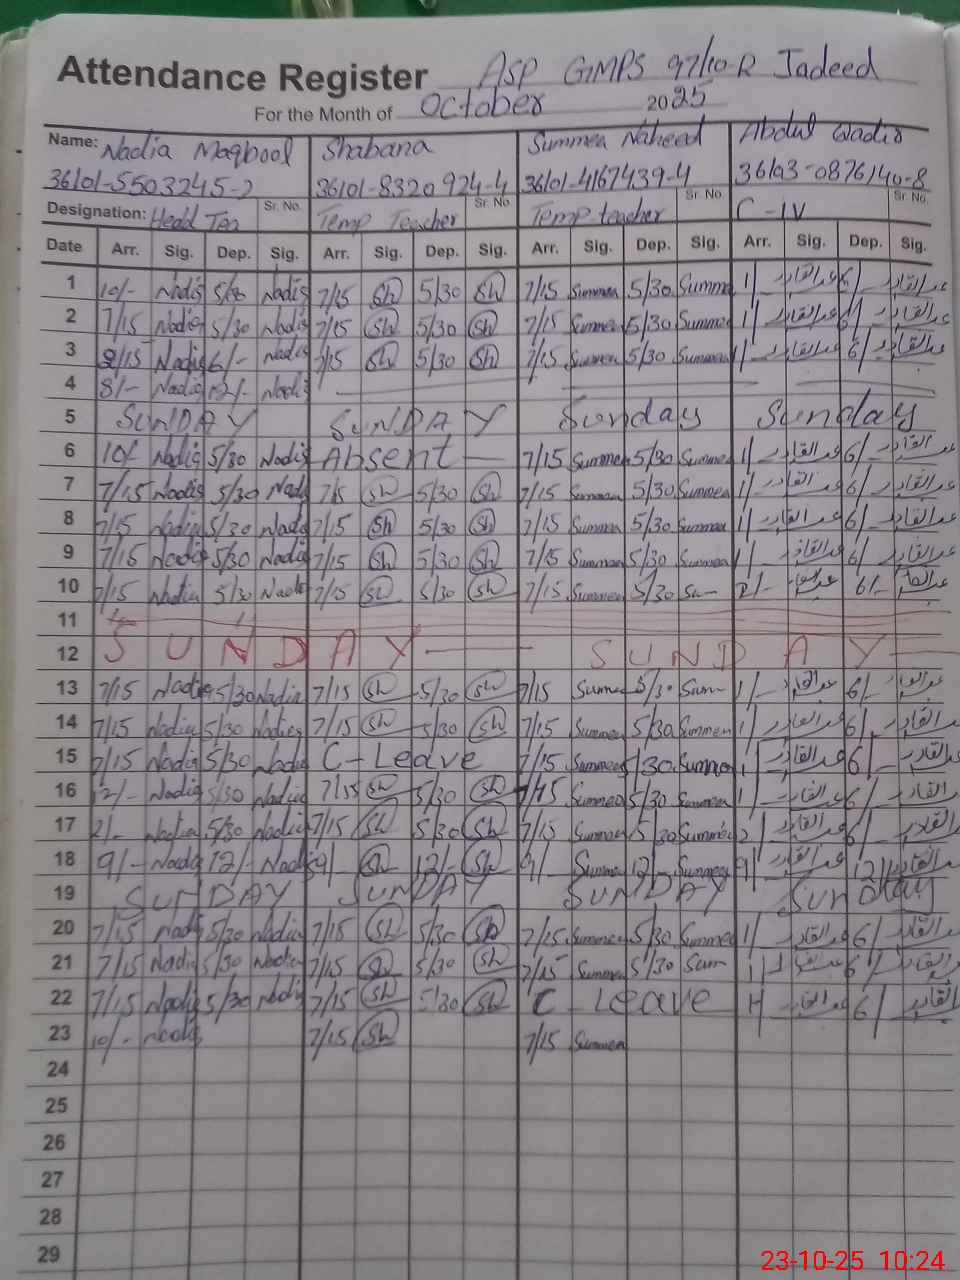 Attendance Register ASP GMPS 97/10-R Jadeed
For the Month of October 2025
Name: Nadia Maqbool Shabana Summea Naheed Abdul Qadir
36101-5503245-2 36101-8320924-4 36101-4167439-4 36103-0876140-8
Designation: Head Sr. No. Temp Teacher Sr. No. Temp teacher Sr. No. C-IV Sr. No.
Date Arr. Sig. Dep. Sig. Arr. Sig. Dep. Sig. Arr. Sig. Dep. Sig. Arr. Sig. Dep. Sig.
1 10/- Nadia 5/30 Nadia 7/15 Sh 5/30 Sh 7/15 Summea 5/30 Summea 1/ عبدالقادر 6/ عبدالقادر
2 7/15 Nadia 5/30 Nadia 7/15 Sh 5/30 Sh 7/15 Summea 5/30 Summea 1/ عبدالقادر عبدالقادر
3 8/15 Nadia 6/- Nadia 7/15 Sh 5/30 Sh 7/15 Summea 5/30 Summea 1/ عبدالقادر 6/ عبدالقادر
4 8/- Nadia 12/- Nadia
5 SUNDAY SUNDAY Sunday Sunday
6 10/- Nadia 5/30 Nadia Absent 7/15 Summea 5/30 Summea 1/ عبدالقادر 6/ عبدالقادر
7 7/15 Nadia 5/30 Nadia 7/15 Sh 5/30 Sh 7/15 Summea 5/30 Summea 1/ عبدالقادر 6/ عبدالقادر
8 7/15 Nadia 5/30 Nadia 7/15 Sh 5/30 Sh 7/15 Summea 5/30 Summea 1/ عبدالقادر 6/ عبدالقادر
9 7/15 Nadia 5/30 Nadia 7/15 Sh 5/30 Sh 7/15 Summea 5/30 Summea 1/ عبدالقادر 6/ عبدالقادر
10 7/15 Nadia 5/30 Nadia 7/15 Sh 5/30 Sh 7/15 Summea 5/30 Sum 2/- عبدالقادر 6/- عبدالقادر
11
12 SUNDAY SUNDAY
13 7/15 Nadia 5/30 Nadia 7/15 Sh 5/30 Sh 7/15 Summea 5/30 Sum 1/ عبدالقادر 6/ عبدالقادر
14 7/15 Nadia 5/30 Nadia 7/15 Sh 5/30 Sh 7/15 Summea 5/30 Summea 1/ عبدالقادر 6/ عبدالقادر
15 7/15 Nadia 5/30 Nadia C-Leave 7/15 Summea 5/30 Summea 1/ عبدالقادر 6/ عبدالقادر
16 12/- Nadia 5/30 Nadia 7/15 Sh 5/30 Sh 7/15 Summea 5/30 Summea 1/ عبدالقادر 6/ عبدالقادر
17 2/- Nadia 5/30 Nadia 7/15 Sh 5/30 Sh 7/15 Summea 5/30 Summea 2/ عبدالقادر 6/ عبدالقادر
18 9/- Nadia 12/- Nadia 9/ Sh 12/- Sh 9/ Summea 12/- Summea 9/ عبدالقادر 12/ عبدالقادر
19 SUNDAY SUNDAY SUNDAY Sunday
20 7/15 Nadia 5/30 Nadia 7/15 Sh 5/30 Sh 7/15 Summea 5/30 Summea 1/ عبدالقادر 6/ عبدالقادر
21 7/15 Nadia 5/30 Nadia 7/15 Sh 5/30 Sh 7/15 Summea 5/30 Sum عبدالقادر 6/ عبدالقادر
22 7/15 Nadia 5/30 Nadia 7/15 Sh 5/30 Sh C-Leave عبدالقادر 6/ عبدالقادر
23 10/- Nadia 7/15 Sh 7/15 Summea
24
25
26
27
28
29
23-10-25 10:24